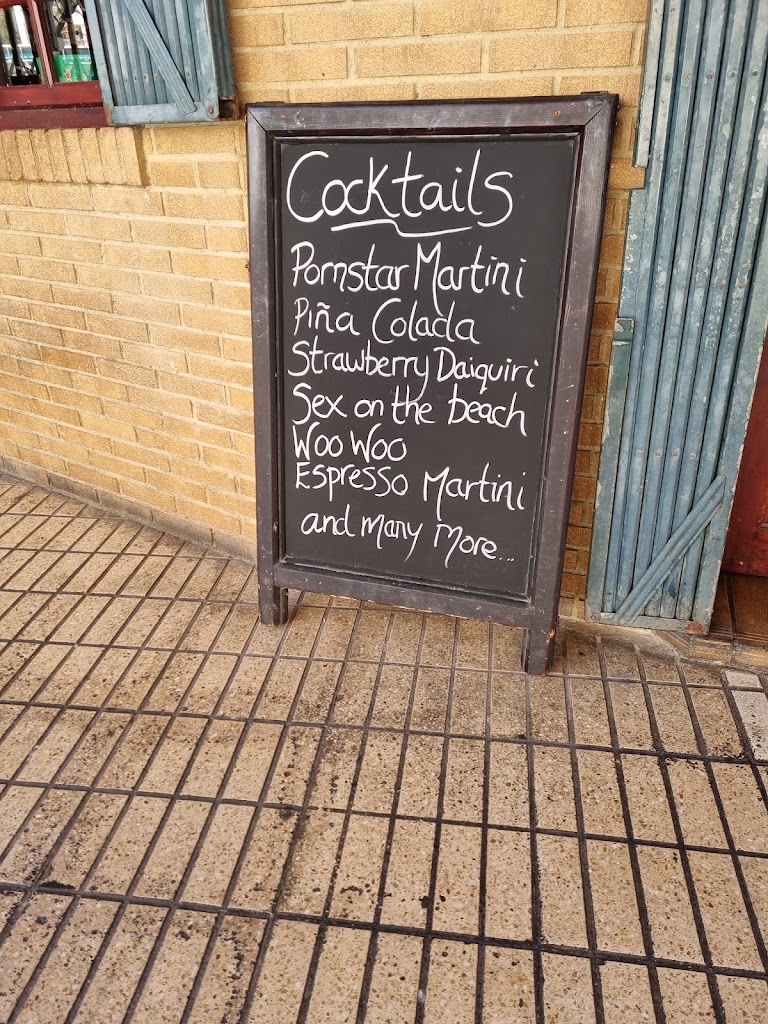 Cocktails
Pornstar Martini
Piña Colada
Strawberry Daiquiri
Sex on the beach
Woo Woo
Espresso Martini
and many more...